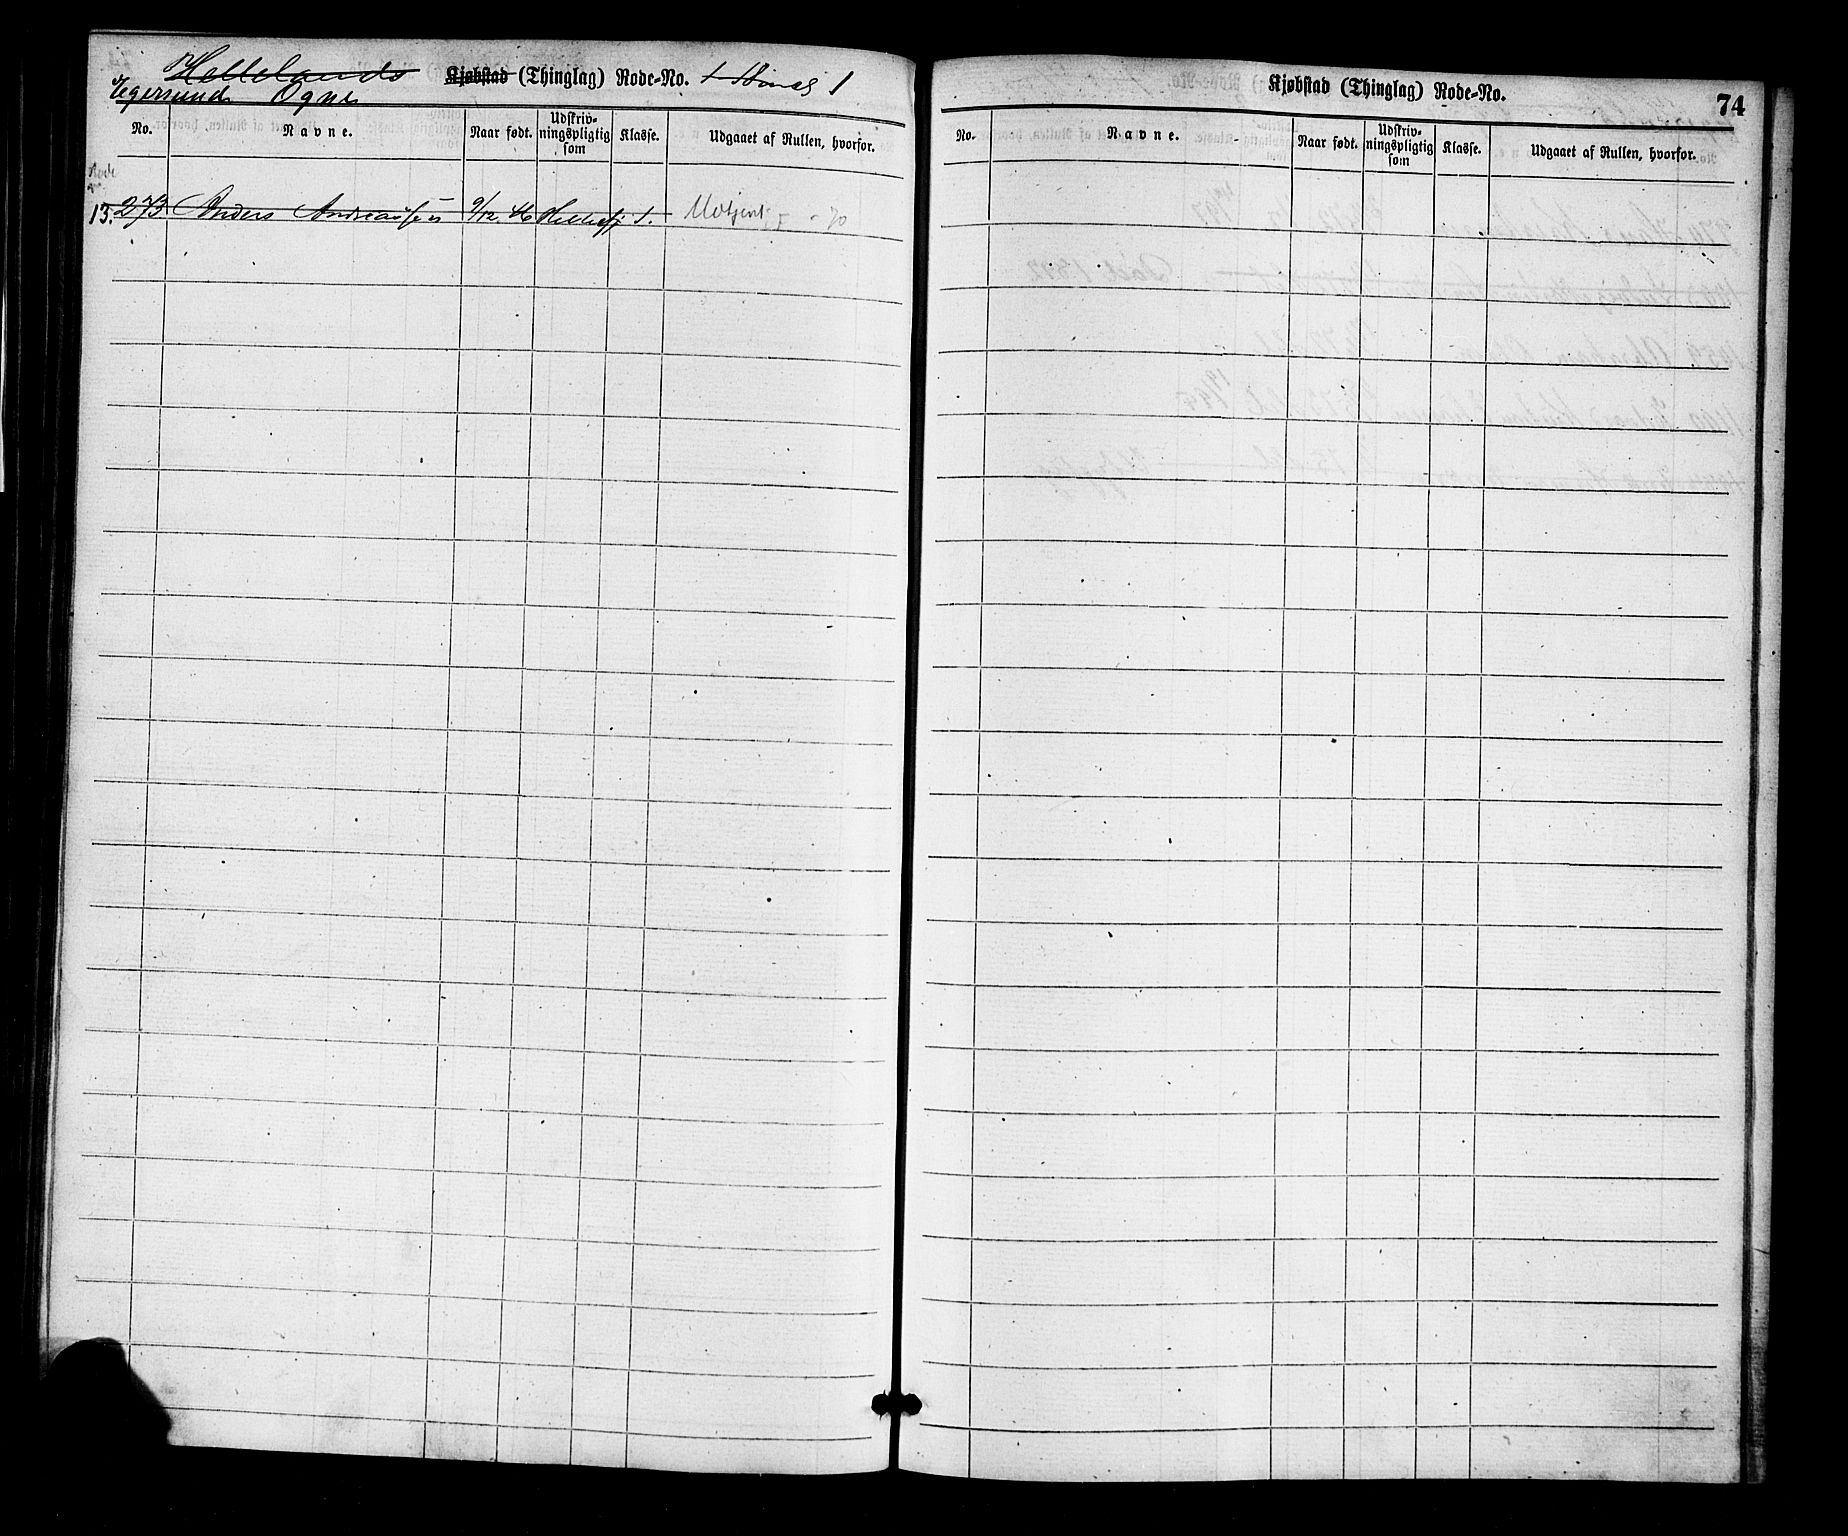 Hellelands Kjøbstad (Thinglag) Rode-No. 1
Egersund Ogne
No. Navne. Naar født. Udskriv-ningspligtig som Klasse. Udgaaet af Rullen, hvorfor.
Rode
13. 273 Anders Andreassen 9/12 46 1. Udtjent 70
Kjøbstad (Thinglag) Rode-No.
74
No. Navne. Naar født. Udskriv-ningspligtig som Klasse. Udgaaet af Rullen, hvorfor.